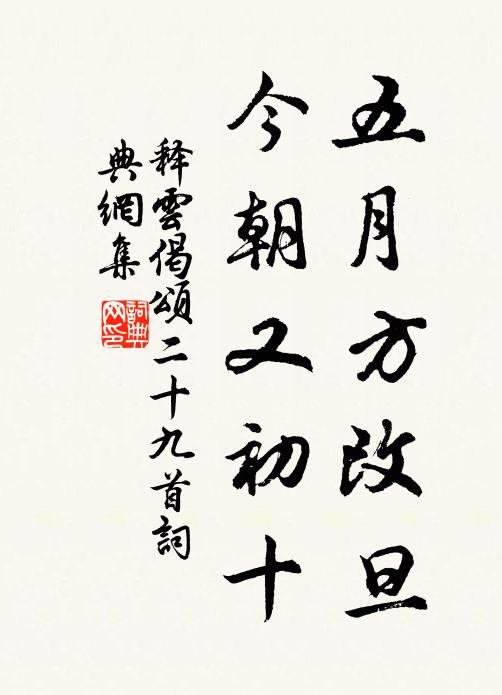 五月方改旦
今朝又初十
释雲偈頌二十九首詞
典網集
詞典
网印